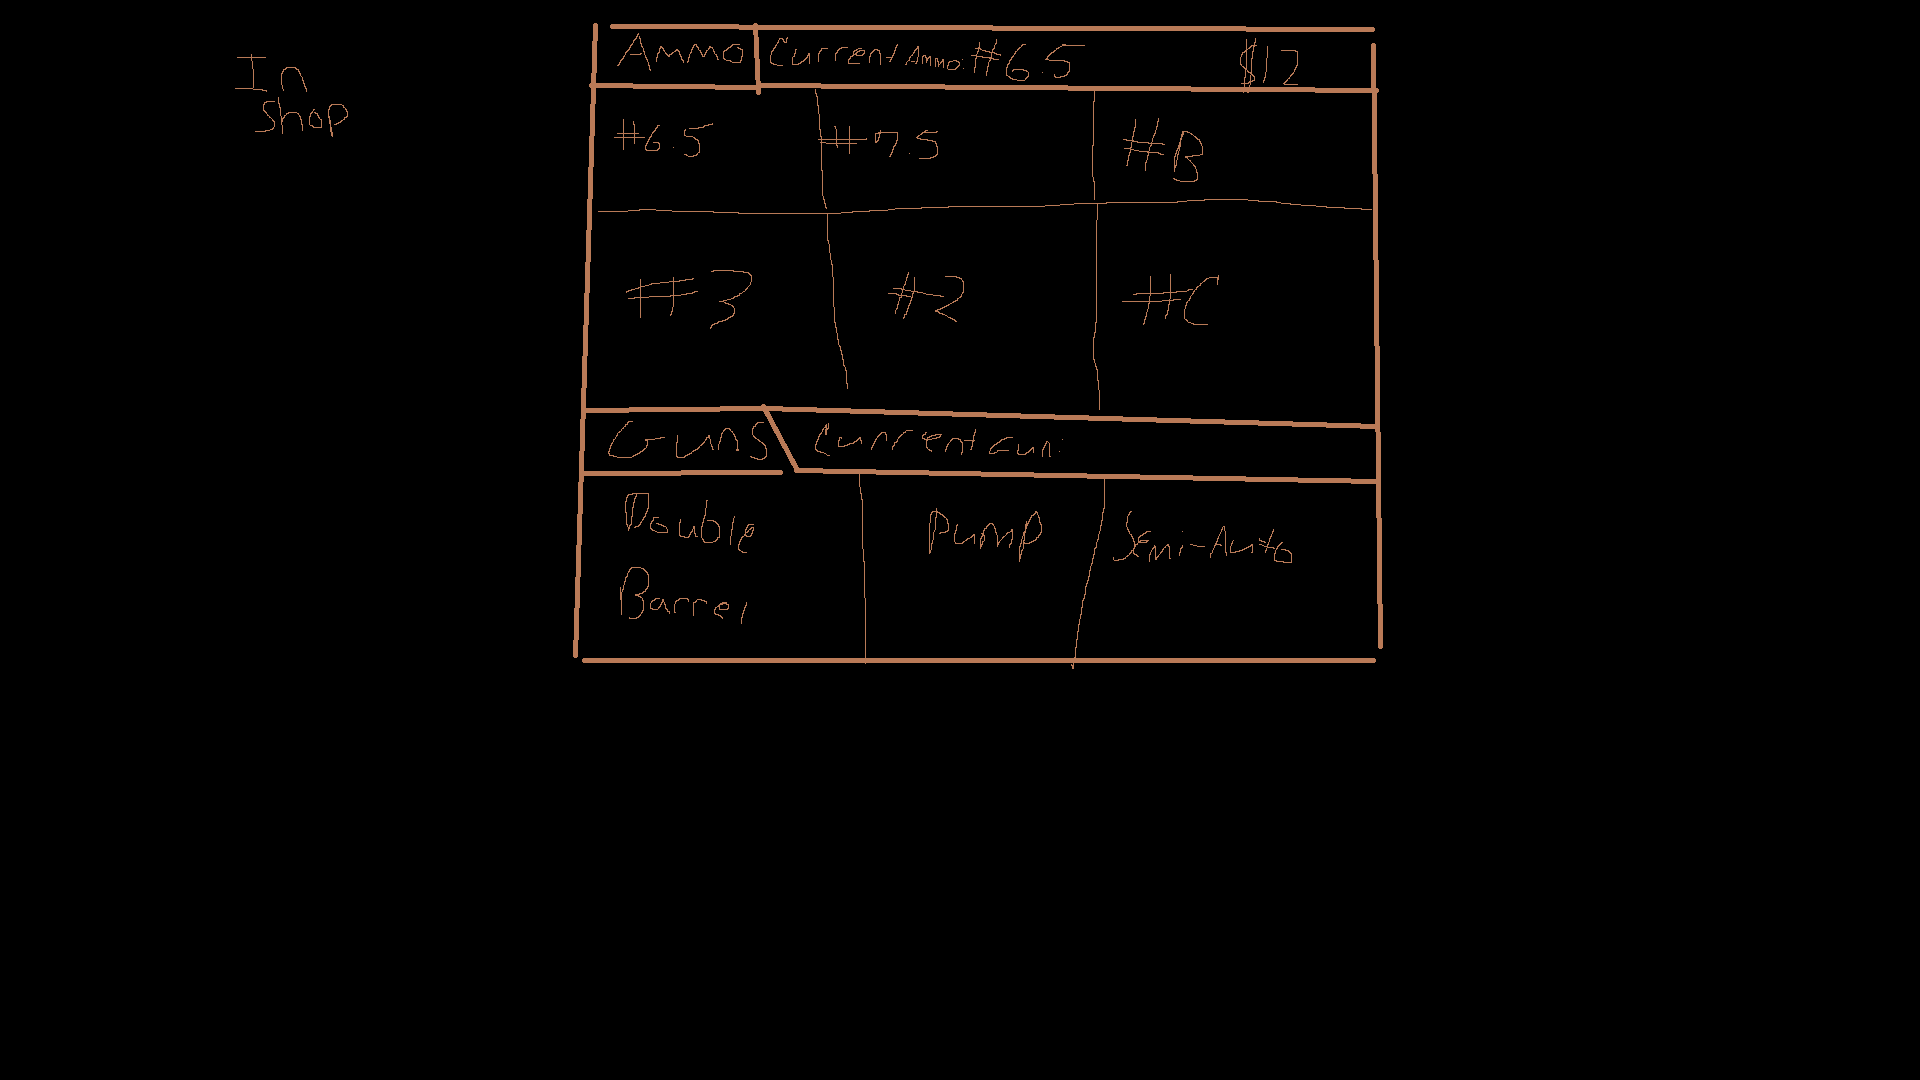 In
shop
Ammo Current Ammo: #6.5 $12
#6.5 #7.5 #B
#3 #2 #C
Guns Current Gun:
Double Pump Semi-Auto
Barrel